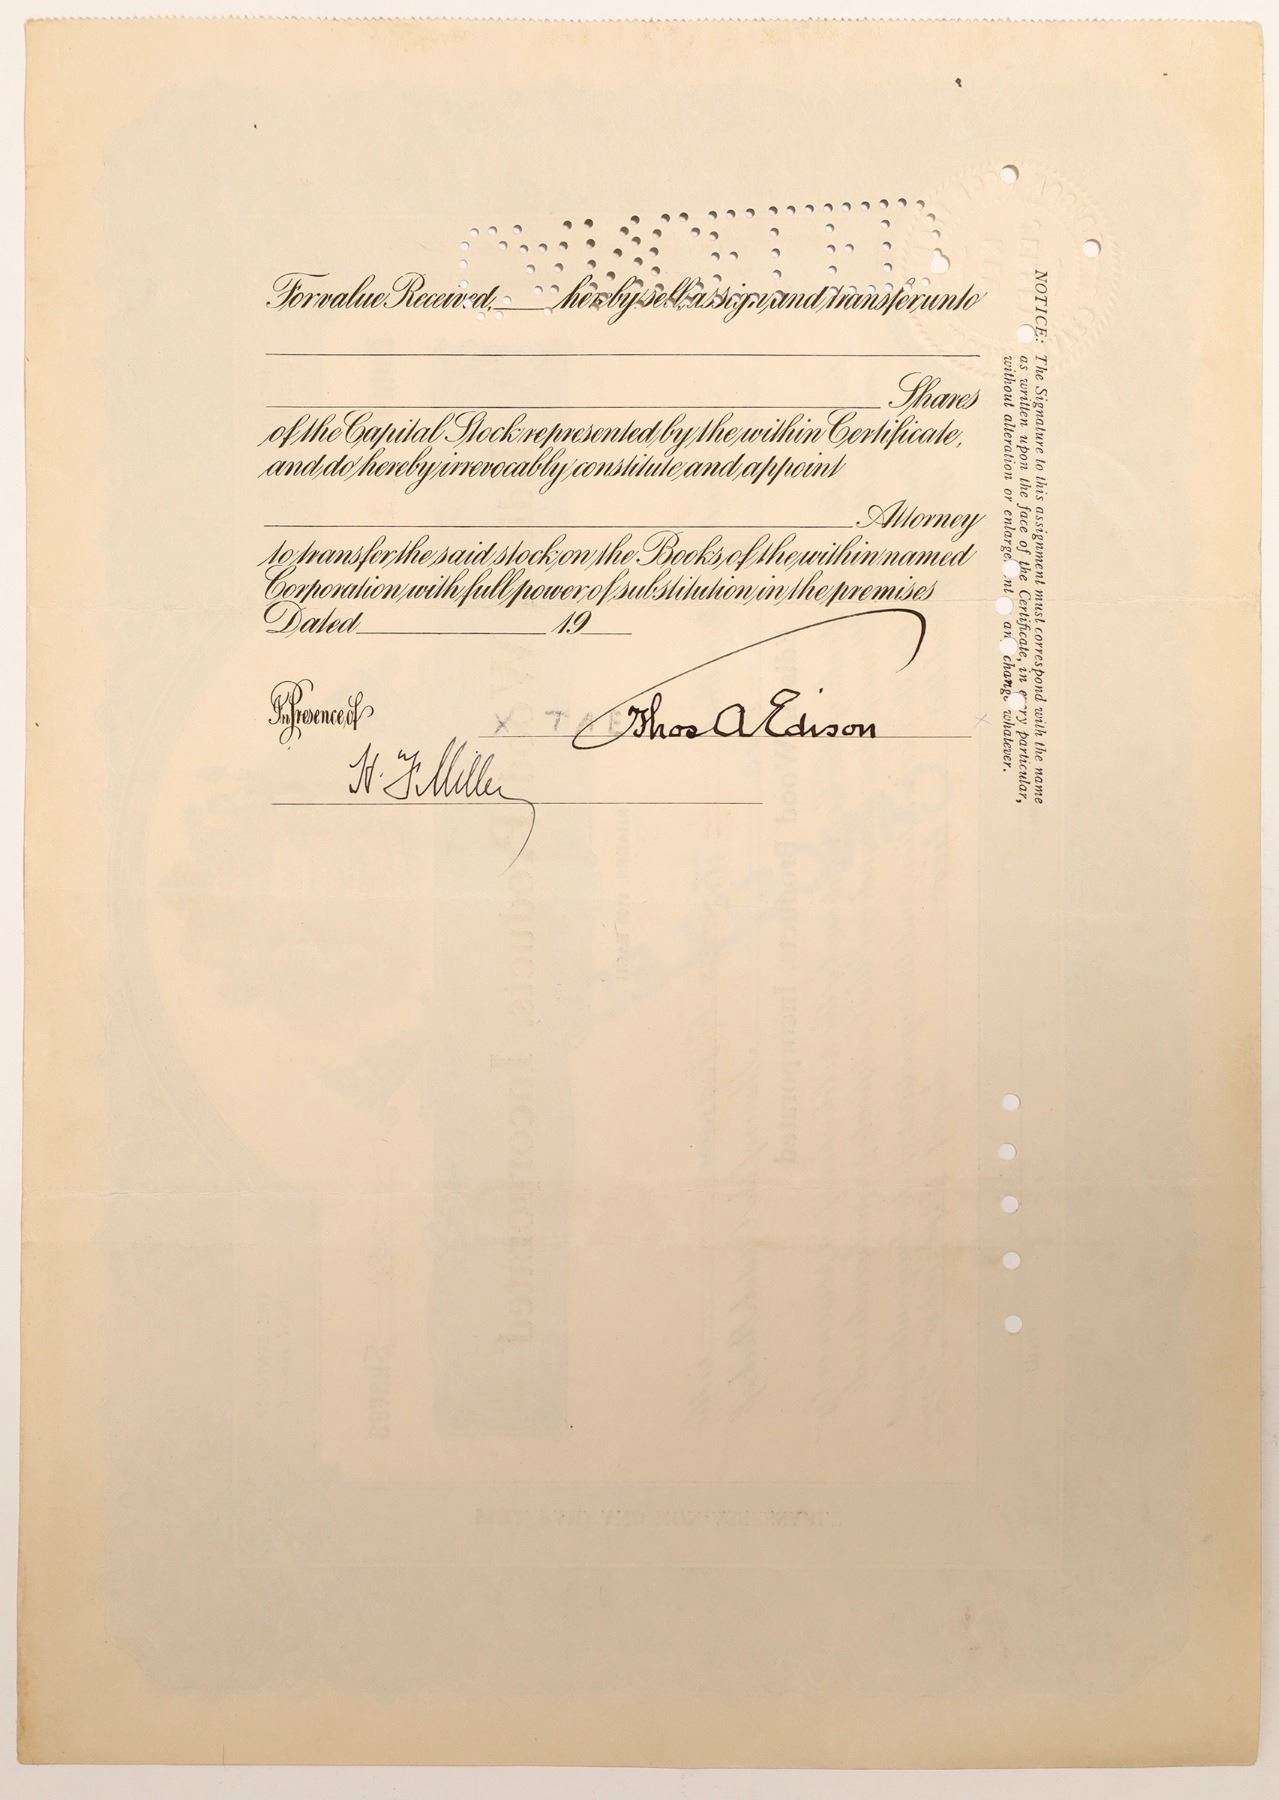 For value Received, ____ hereby sell, assign, and transfer, unto
____ Shares
of the Capital Stock represented by the within Certificate,
and do hereby irrevocably constitute and appoint
____ Attorney
to transfer the said stock on the Books of the within named
Corporation with full power of substitution in the premises
Dated ____ 19 __
In Presence of
Thos A Edison
H. F. Miller
NOTICE: The Signature to this assignment must correspond with the name
as written upon the face of the Certificate, in every particular,
without alteration or enlargement or any change whatever.